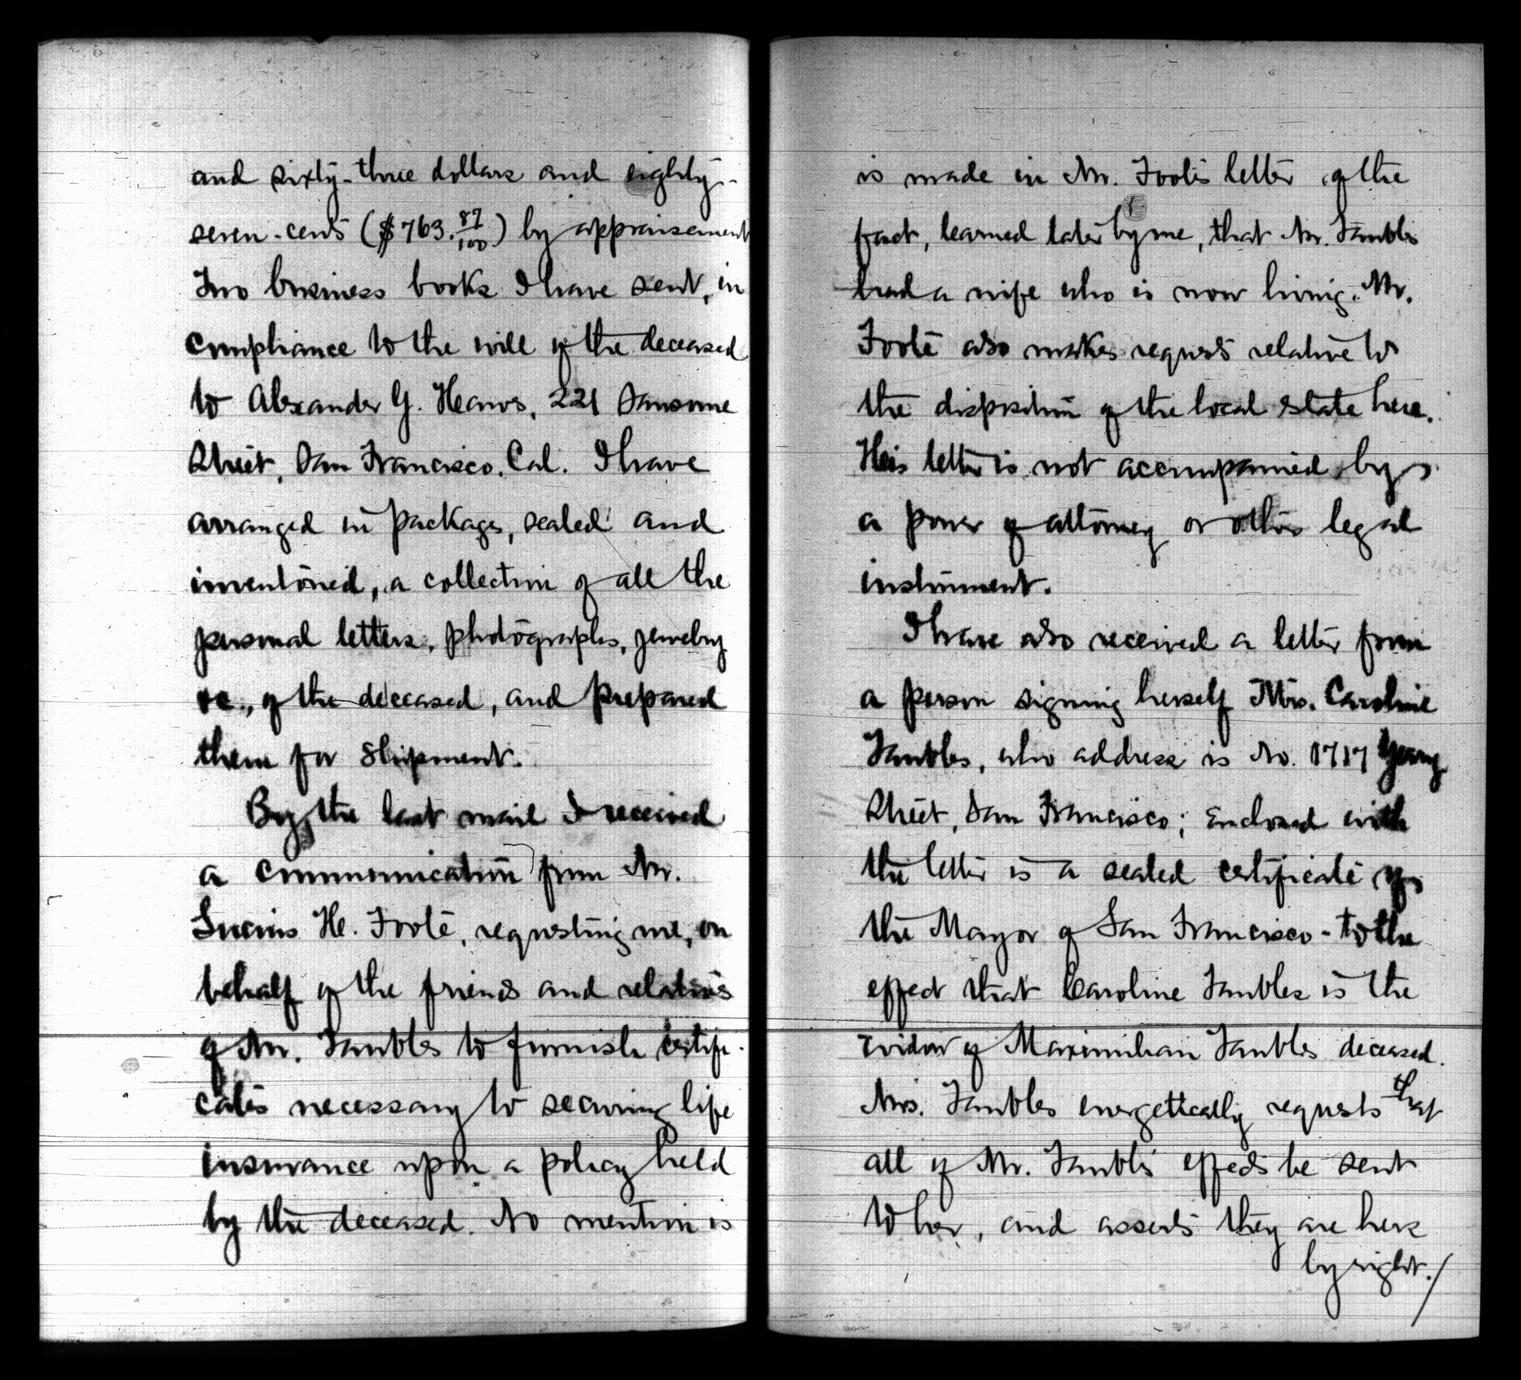 and sixty-three dollars and eighty-
seven-cents ($763.87/100) by appraisement
Two business books I have sent, in
compliance to the will of the deceased
to Alexander G. Hearos, 221 Sansome
Street, San Francisco, Cal. I have
arranged in packages, sealed and
inventoried, a collection of all the
personal letters, photographs, jewelry
&c., of the deceased, and prepared
them for shipment.
By the last mail I received
a communication from Mr.
Lucius H. Foote, requesting me, on
behalf of the friends and relatives
of Mr. Taubles to furnish certifi-
cates necessary to securing life
insurance upon a policy held
by the deceased. No mention is
is made in Mr. Foote's letter of the
fact, learned later by me, that Mr. Taubles
had a wife who is now living. Mr.
Foote also makes requests relative to
the disposition of the local estate here.
His letter is not accompanied by
a power of attorney or other legal
instrument.
I have also received a letter from
a person signing herself Mrs. Caroline
Taubles, who address is No. 1717 Geary
Street, San Francisco; Enclosed with
the letter is a sealed certificate of
the Mayor of San Francisco - to the
effect that Caroline Taubles is the
widow of Maximilian Taubles deceased.
Mrs. Taubles energetically requests that
all of Mr. Taubles' effects be sent
to her, and asserts they are hers
by right./